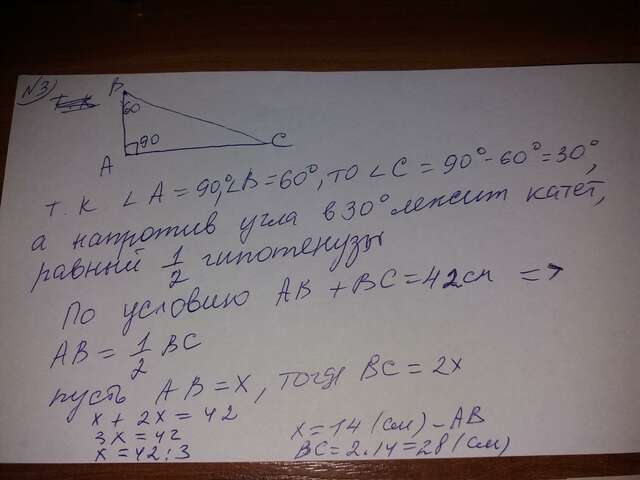 №3
B
60
90
A
C
т.к ∠A = 90°, ∠B = 60°, то ∠C = 90° - 60° = 30°,
а напротив угла в 30° лежит катет,
равный 1/2 гипотенузы
По условию AB + BC = 42 см =>
AB = 1/2 BC
пусть AB = x, тогда BC = 2x
x + 2x = 42
3x = 42
x = 42 : 3
x = 14 (см) - AB
BC = 2 . 14 = 28 (см)